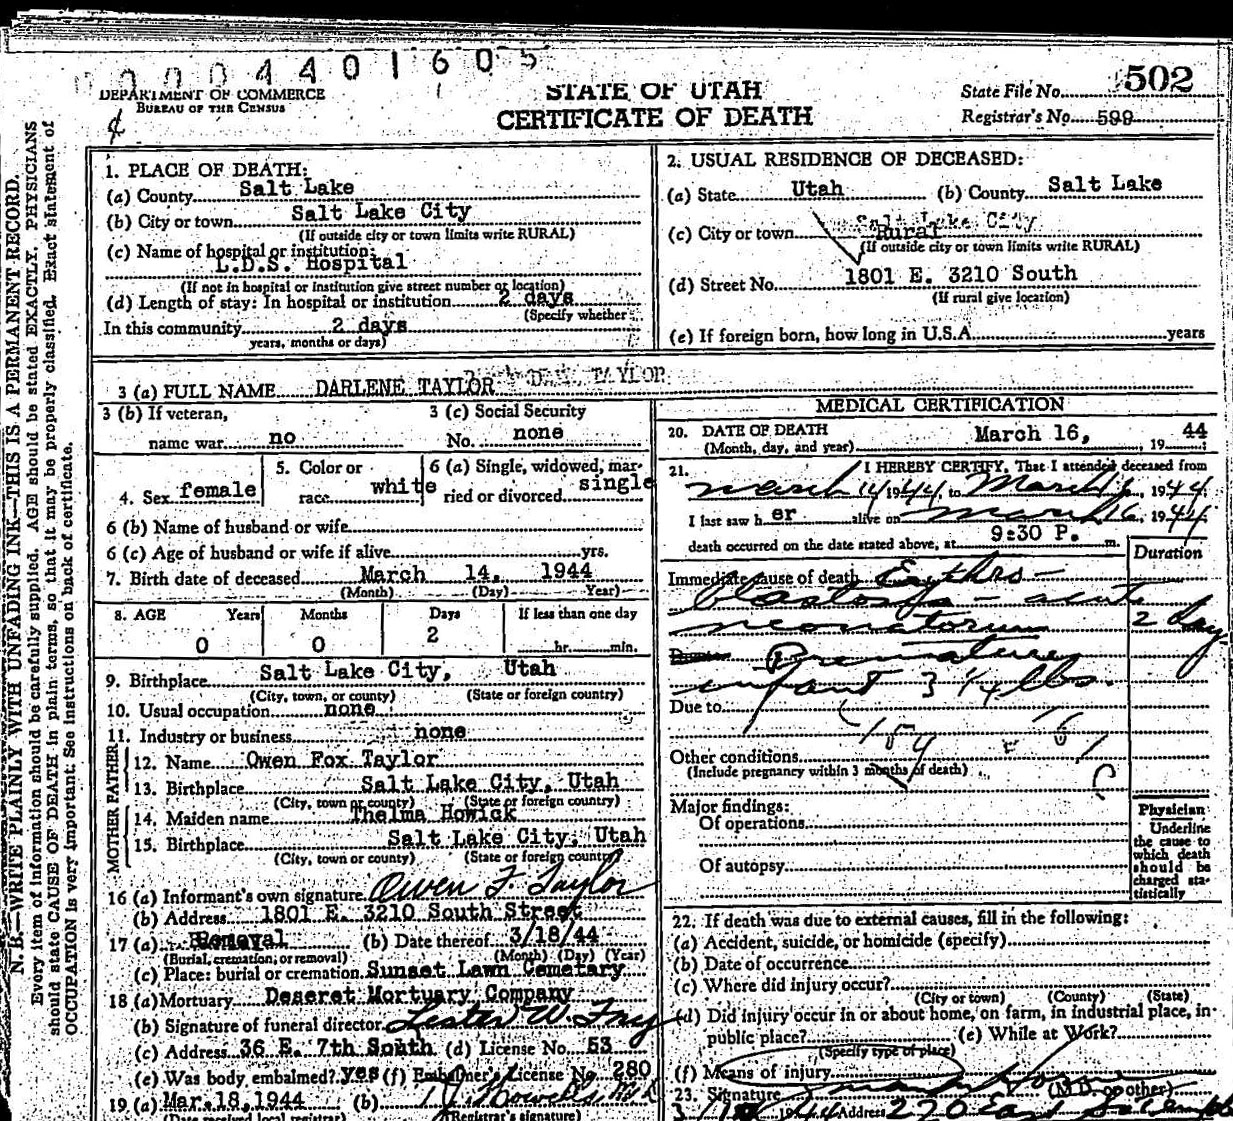 0004401605
DEPARTMENT OF COMMERCE
BUREAU OF THE CENSUS
STATE OF UTAH
CERTIFICATE OF DEATH
State File No. 502
Registrar's No. 599
N. B.—WRITE PLAINLY WITH UNFADING INK—THIS IS A PERMANENT RECORD.
Every item of information should be carefully supplied. AGE should be stated EXACTLY. PHYSICIANS
should state CAUSE OF DEATH in plain terms, so that it may be properly classified. Exact statement of
OCCUPATION is very important. See instructions on back of certificate.
1. PLACE OF DEATH:
(a) County Salt Lake
(b) City or town Salt Lake City
(If outside city or town limits write RURAL)
(c) Name of hospital or institution:
L.D.S. Hospital
(If not in hospital or institution give street number or location)
(d) Length of stay: In hospital or institution 2 days
(Specify whether
In this community 2 days
years, months or days)
2. USUAL RESIDENCE OF DECEASED:
(a) State Utah (b) County Salt Lake
Salt Lake City
(c) City or town Rural
(If outside city or town limits write RURAL)
(d) Street No. 1801 E. 3210 South
(If rural give location)
(e) If foreign born, how long in U.S.A. years
3 (a) FULL NAME DARLENE TAYLOR TAYLOR
3 (b) If veteran,
name war no
3 (c) Social Security
No. none
4. Sex female
5. Color or
race white
6 (a) Single, widowed, mar-
ried or divorced single
6 (b) Name of husband or wife
6 (c) Age of husband or wife if alive yrs.
7. Birth date of deceased March 14, 1944
(Month) (Day) Year)
8. AGE Years Months Days If less than one day
0 0 2 hr. min.
9. Birthplace Salt Lake City, Utah
(City, town, or county) (State or foreign country)
10. Usual occupation none
11. Industry or business none
FATHER
12. Name Owen Fox Taylor
13. Birthplace Salt Lake City, Utah
(City, town or county) (State or foreign country)
MOTHER
14. Maiden name Thelma Howick
15. Birthplace Salt Lake City, Utah
(City, town or county) (State or foreign country)
16 (a) Informant's own signature Owen F. Taylor
(b) Address 1801 E. 3210 South Street
17 (a) Removal (b) Date thereof 3/18/44
(Burial, cremation, or removal) (Month) (Day) (Year)
(c) Place: burial or cremation Sunset Lawn Cemetary
18 (a) Mortuary Deseret Mortuary Company
(b) Signature of funeral director Lester W. Fry
(c) Address 36 E. 7th South (d) License No. 53
(e) Was body embalmed? yes (f) Embalmer's License No. 280
19 (a) Mar. 18, 1944 (b)
(Date received local registrar) (Registrar's signature)
MEDICAL CERTIFICATION
20. DATE OF DEATH
(Month, day, and year) March 16, 1944
21. I HEREBY CERTIFY, That I attended deceased from
March 14 1944, to March 16, 1944
I last saw her alive on March 16, 1944
death occurred on the date stated above, at 9:30 P. m.
Duration
Immediate cause of death Erythro-
blastosis - acute
neonatorum 2 days
Premature
infant 3 1/4 lbs.
Due to
Other conditions
(Include pregnancy within 3 months of death)
Major findings:
Of operations
Of autopsy
Physician
Underline
the cause to
which death
should be
charged sta-
tistically
22. If death was due to external causes, fill in the following:
(a) Accident, suicide, or homicide (specify)
(b) Date of occurrence
(c) Where did injury occur?
(City or town) (County) (State)
(d) Did injury occur in or about home, on farm, in industrial place, in
public place? (e) While at Work?
(Specify type of place)
(f) Means of injury
23. Signature (M.D. or other)
Address 270 East